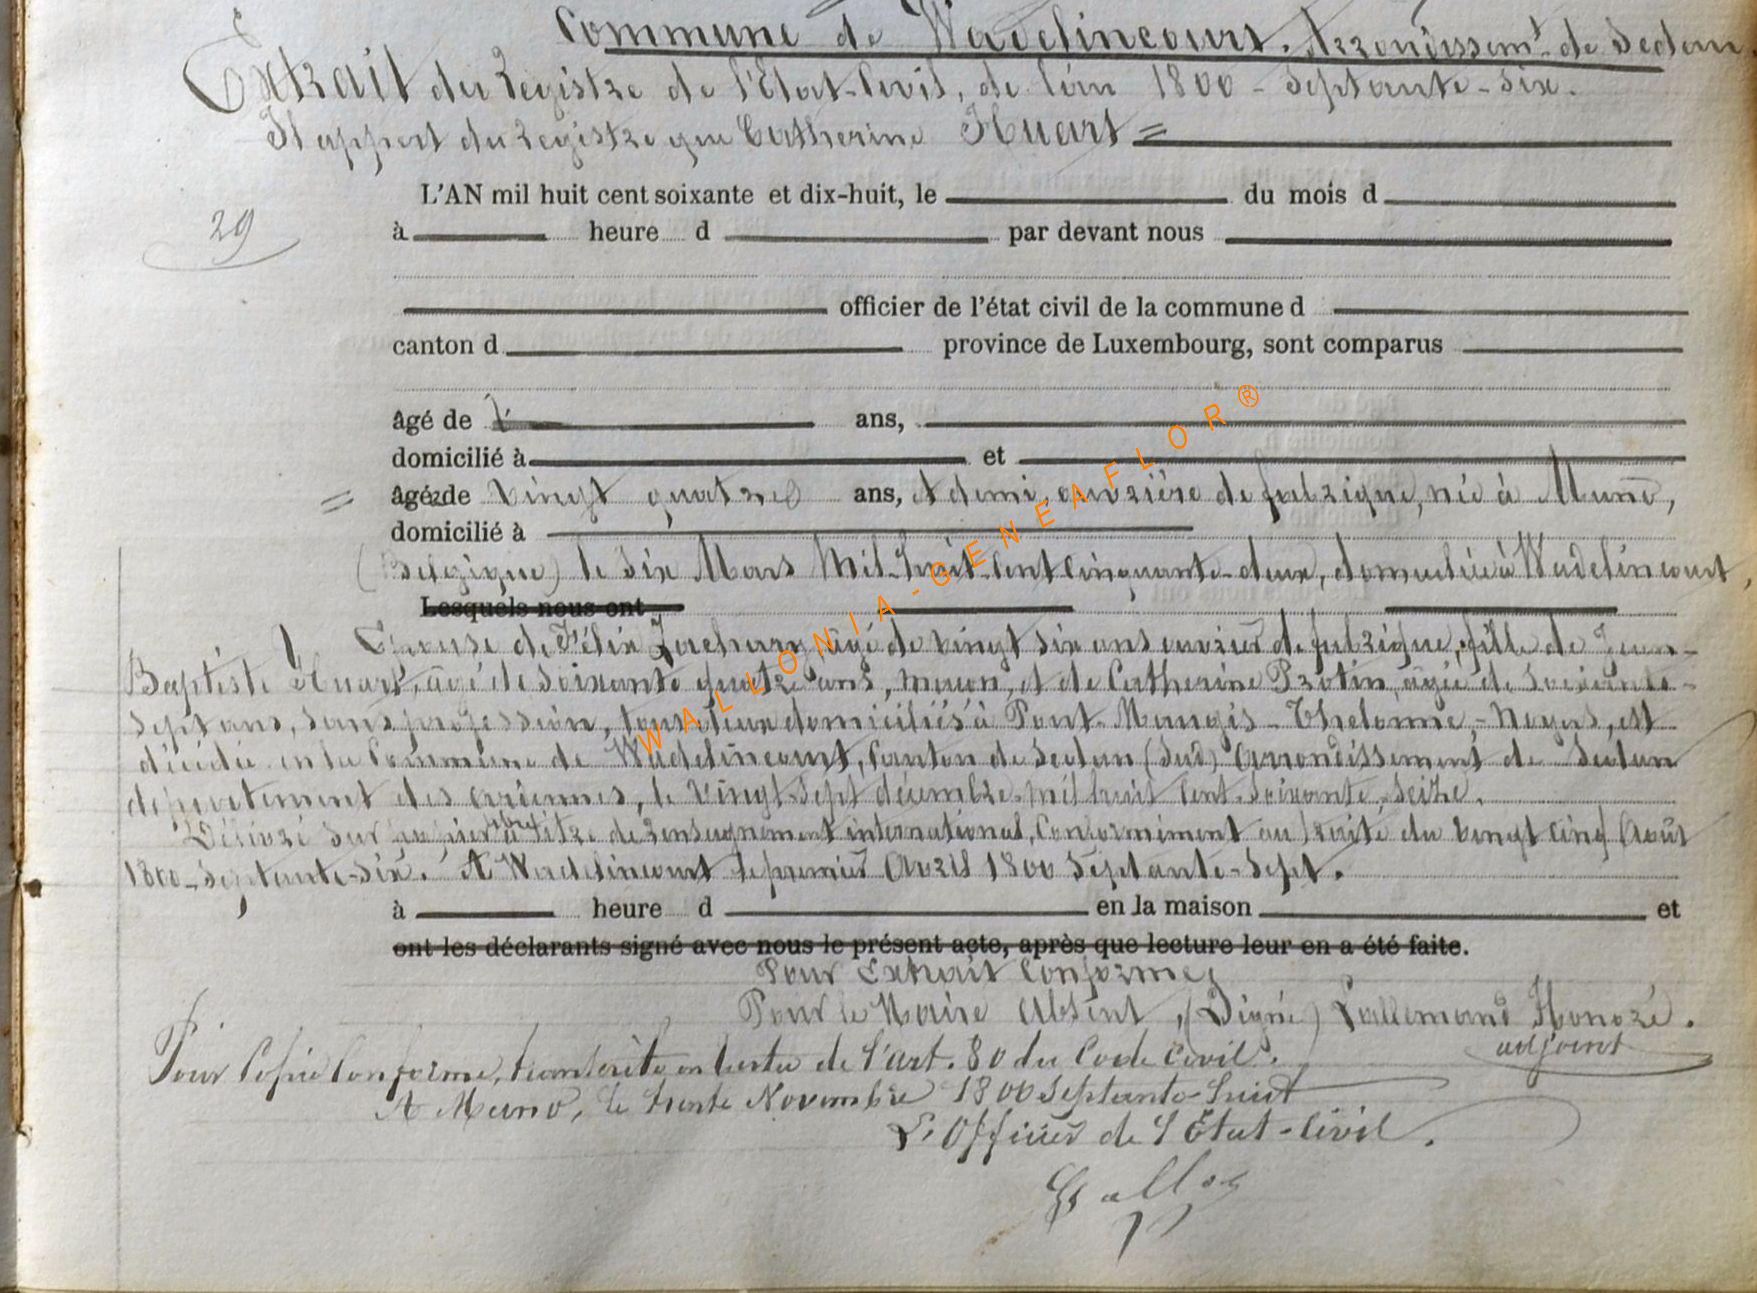 Commune de Wadelincourt. Arrondissemt. de Sedan
Extrait du Registre de l'Etat-Civil, de l'an 1800 - Septante - Six.
Il appert du Registre que Catherine Huart =
L'AN mil huit cent soixante et dix-huit, le du mois d
29
à heure d par devant nous
officier de l'état civil de la commune d
canton d province de Luxembourg, sont comparus
âgé de ans,
domicilié à et
= âgée de vingt quatre ans, et demi, ouvrière de fabrique, née à Muno,
domicilié à
(Belgique) le Six Mars Mil-huit-cent cinquante-deux, domiciliée à Wadelincourt,
Lesquels nous ont
Epouse de Félix Zachary, âgé de vingt six ans ouvrier de fabrique, fille de Jean-
Baptiste Huart, âgé de soixante quatre ans, maçon, et de Catherine Protin, âgée de Soixante-
Sept ans, sans profession, tous deux domiciliés à Pont-Maugis - Thelonne, - Noyers, est
décédée en la Commune de Wadelincourt, Canton de Sedan (Sud) Arrondissement de Sedan
département des Ardennes, le Vingt-Sept décembre mil huit Cent Soixante-Seize.
Délivré sur papier libre à titre de renseignement international, Conformément au traité du vingt cinq Août
1800-Septante-Six. A Wadelincourt le premier Avril 1800 Septante-Sept.
à heure d en la maison et
ont les déclarants signé avec nous le présent acte, après que lecture leur en a été faite.
Pour Extrait Conforme,
Pour le Maire Absent, (Signé) Lallemand Honoré.
adjoint
Pour Copie Conforme, transcrite en vertu de l'art. 80 du Code Civil.
A Muno, le trente Novembre 1800 Septante-huit
L'Officier de l'Etat-Civil.
WALLONIA-GENEAFLOR®